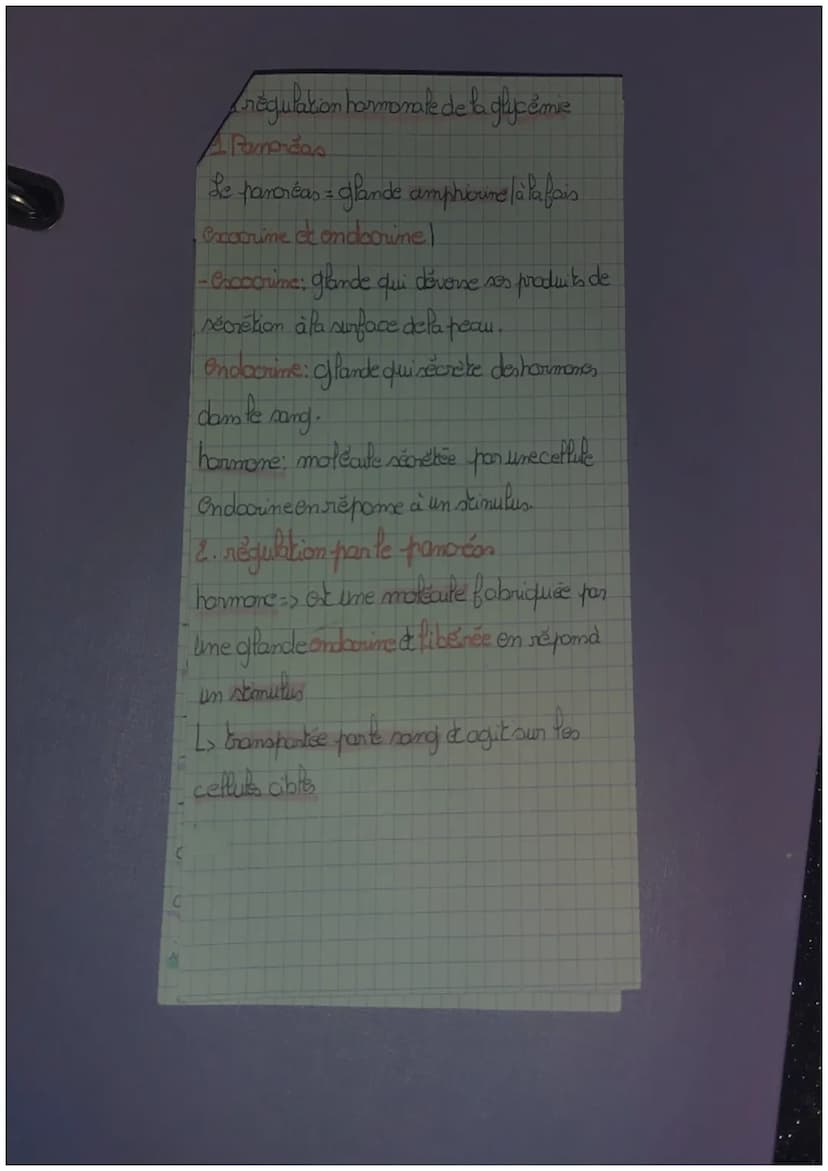 régulation hormonale de la glycémie
1 Pancréas
Le pancréas = glande amphicrine (à la fois
exocrine et endocrine)
- Exocrine: glande qui déverse ses produits de
sécrétion à la surface de la peau.
Endocrine: glande qui sécrète des hormones
dans le sang.
hormone: molécule sécrétée par une cellule
endocrine en réponse à un stimulus.
2. régulation par le pancréas
hormone => est une molécule fabriquée par
une glande endocrine et libérée en répond
un stimulus
L> transportée par le sang et agit sur les
cellules cibles